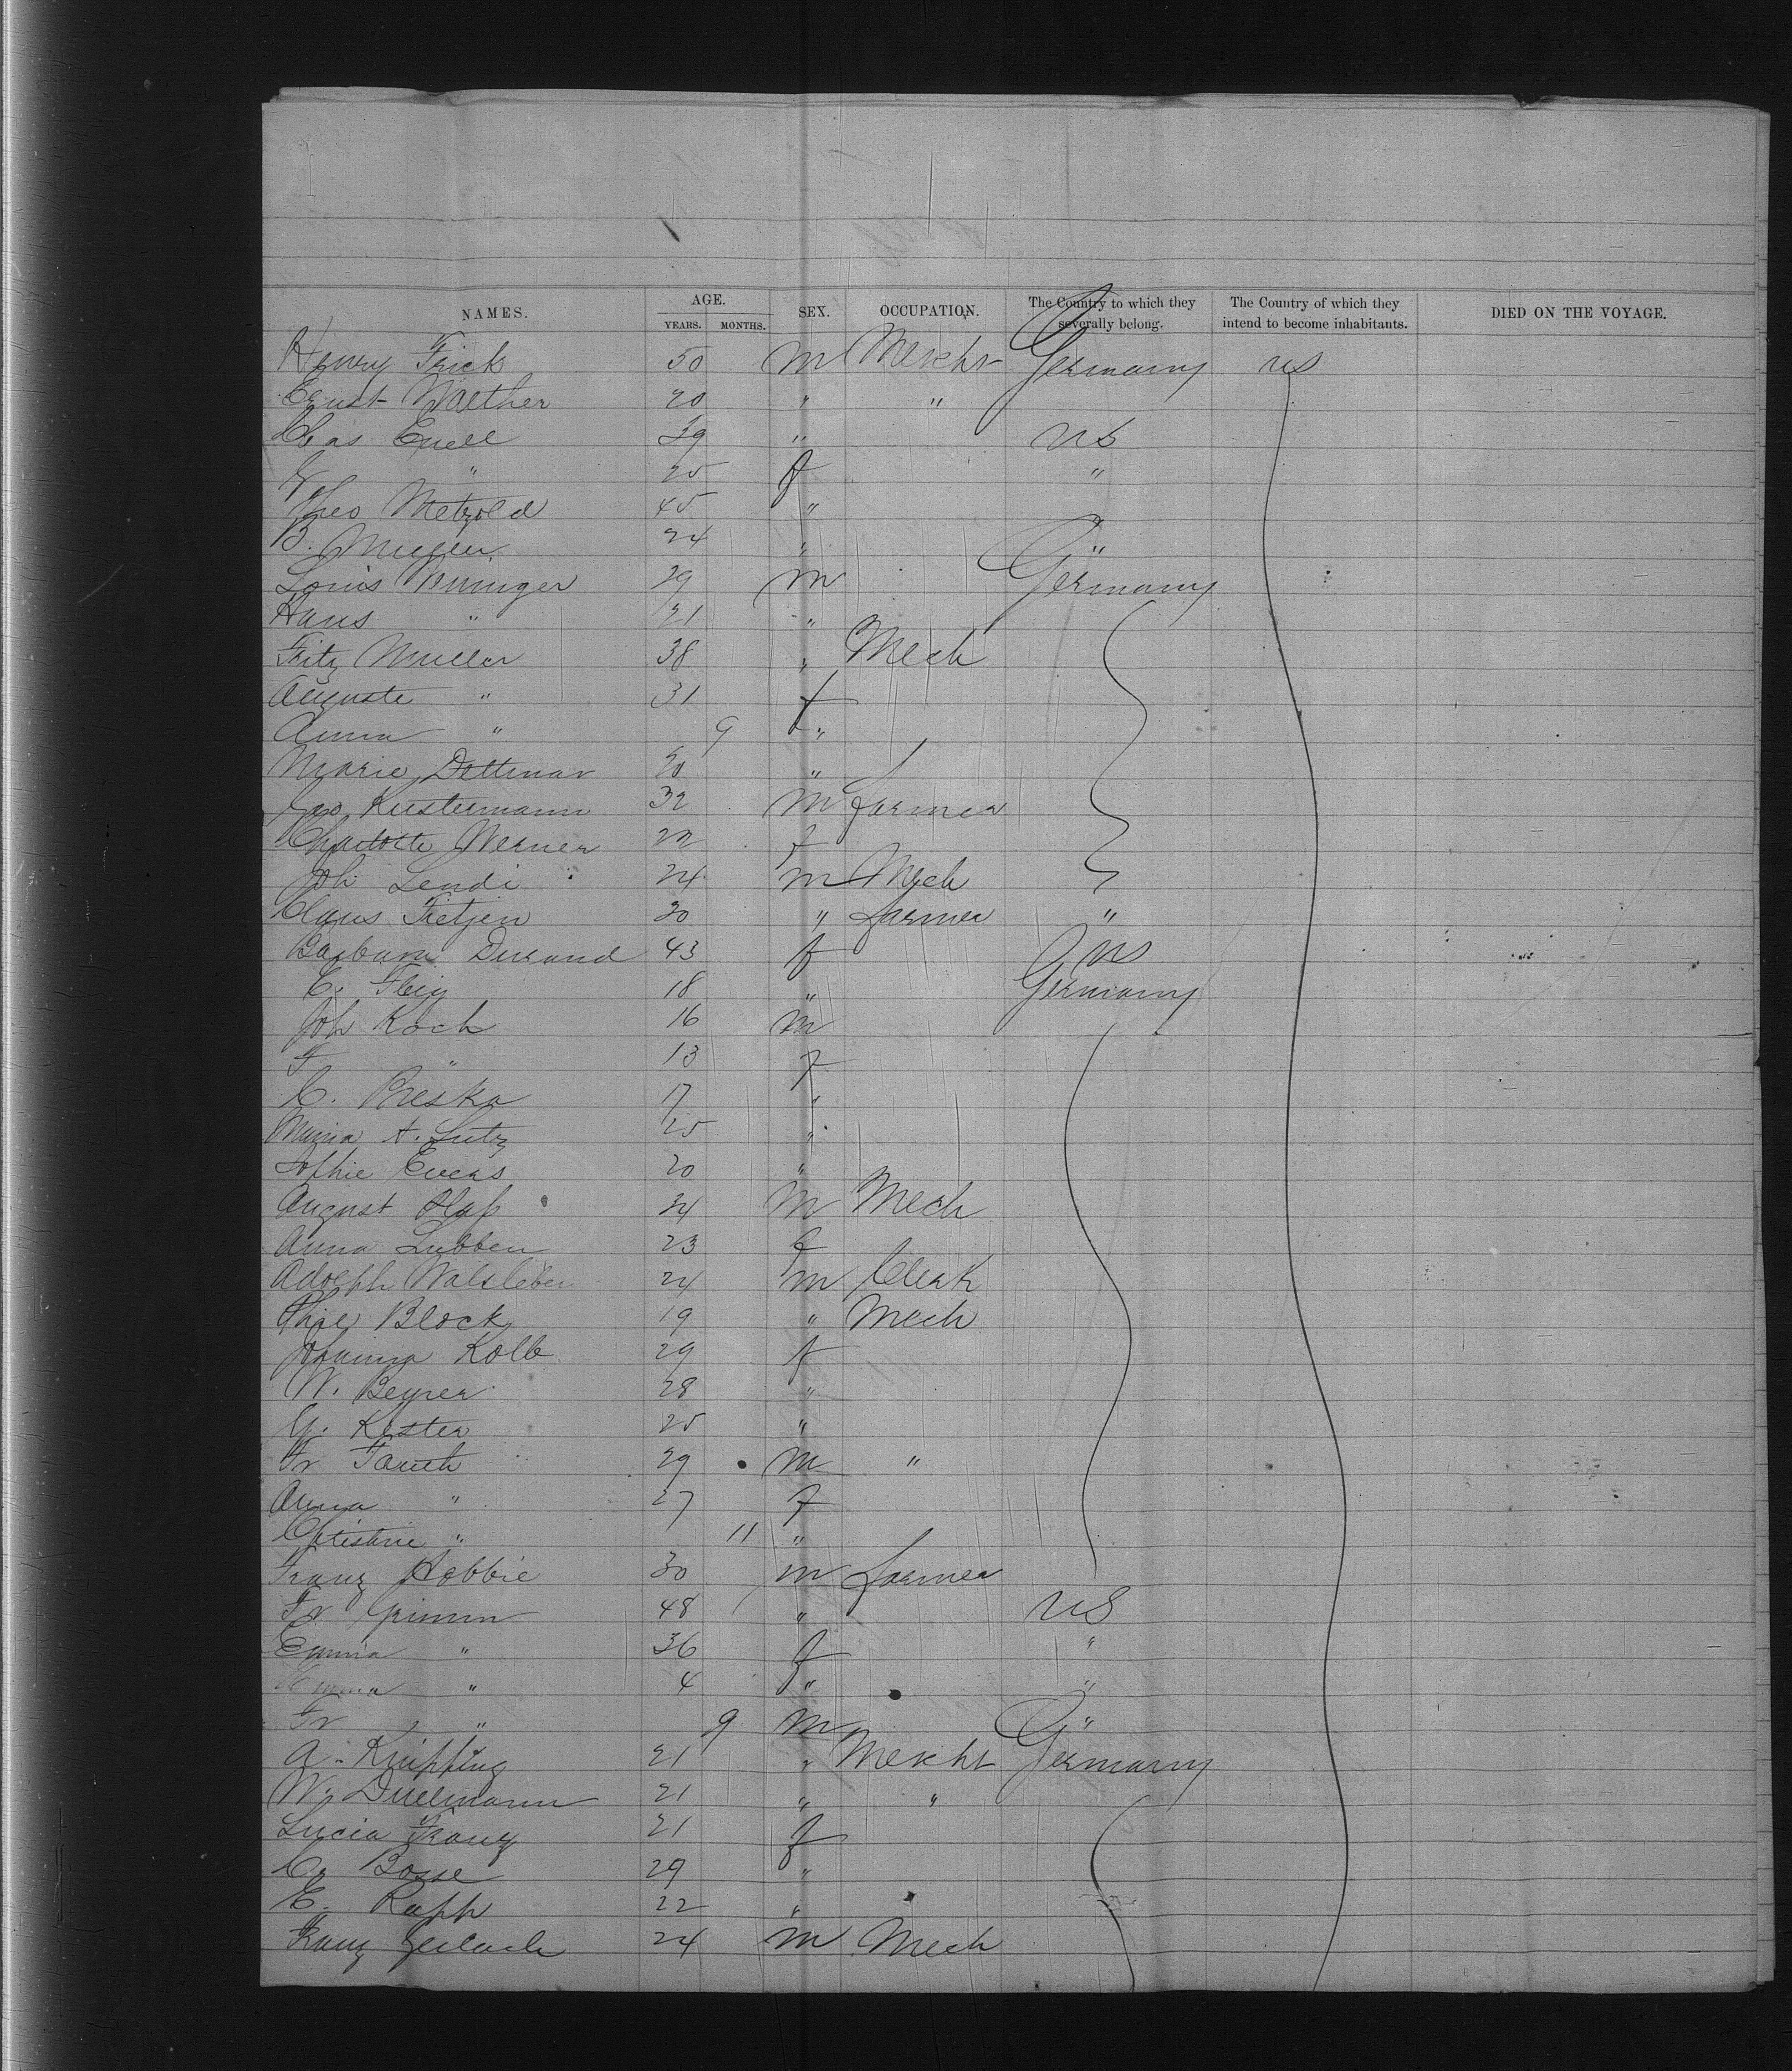 NAMES. AGE. YEARS. MONTHS. SEX. OCCUPATION. The Country to which they severally belong. The Country of which they intend to become inhabitants. DIED ON THE VOYAGE.
Henry Frick 50 m Mercht Germany US
Ernst Walther 20 " "
Chas Enell 39 " US
" 25 f "
Theo Metzold 45 "
B. 24 " "
Louis 29 m Germany
Hans " 21 "
Fritz Muller 38 " Mech
Auguste " 31 f
Anna " 9 f "
Marie Dettmar 20 "
Geo Kustermann 32 m farmer
Charlotte Werner 22 f
Joh Lendi 24 m Mech
Claus Tietjen 30 " farmer "
Barbara Durand 43 f US
C. Fleig 18 " Germany
Joh Koch 16 m
F " 13 f
C. Breska 17 "
Maria A. Lutz 25 "
Sophie Evers 20 "
August 34 m Mech
Anna Lubben 23 f
Adolph Walsleben 24 m Clerk
Block 19 " Mech
Johanna Kolb 29 f
W. Beyrer 28 "
G. Kester 25 "
Fr Fauth 29 m "
Anna " 27 f
Christine " 11 "
Franz Hobbie 30 m farmer
Fr Grimm 48 " US
Emma " 36 f "
Emma " 4 " "
Fr " 9 m "
A. Knipping 21 " Mercht Germany
W. Duelmann 21 " "
Lucia Franz 21 f
C. Bosse 29 "
E. Rapp 22 "
Franz Gerlach 24 m Mech